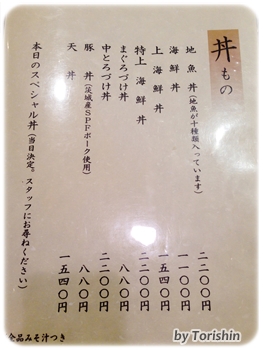 丼もの
地魚丼(地魚が十種類入っています) 二二〇〇円
海鮮丼 一一〇〇円
上海鮮丼 一五四〇円
特上海鮮丼 二二〇〇円
まぐろづけ丼 八八〇円
中とろづけ丼 二二〇〇円
豚丼(茨城産SPFポーク使用) 八八〇円
天丼 一五四〇円
本日のスペシャル丼(当日決定。スタッフにお尋ねください)
全品みそ汁つき
by Torishin